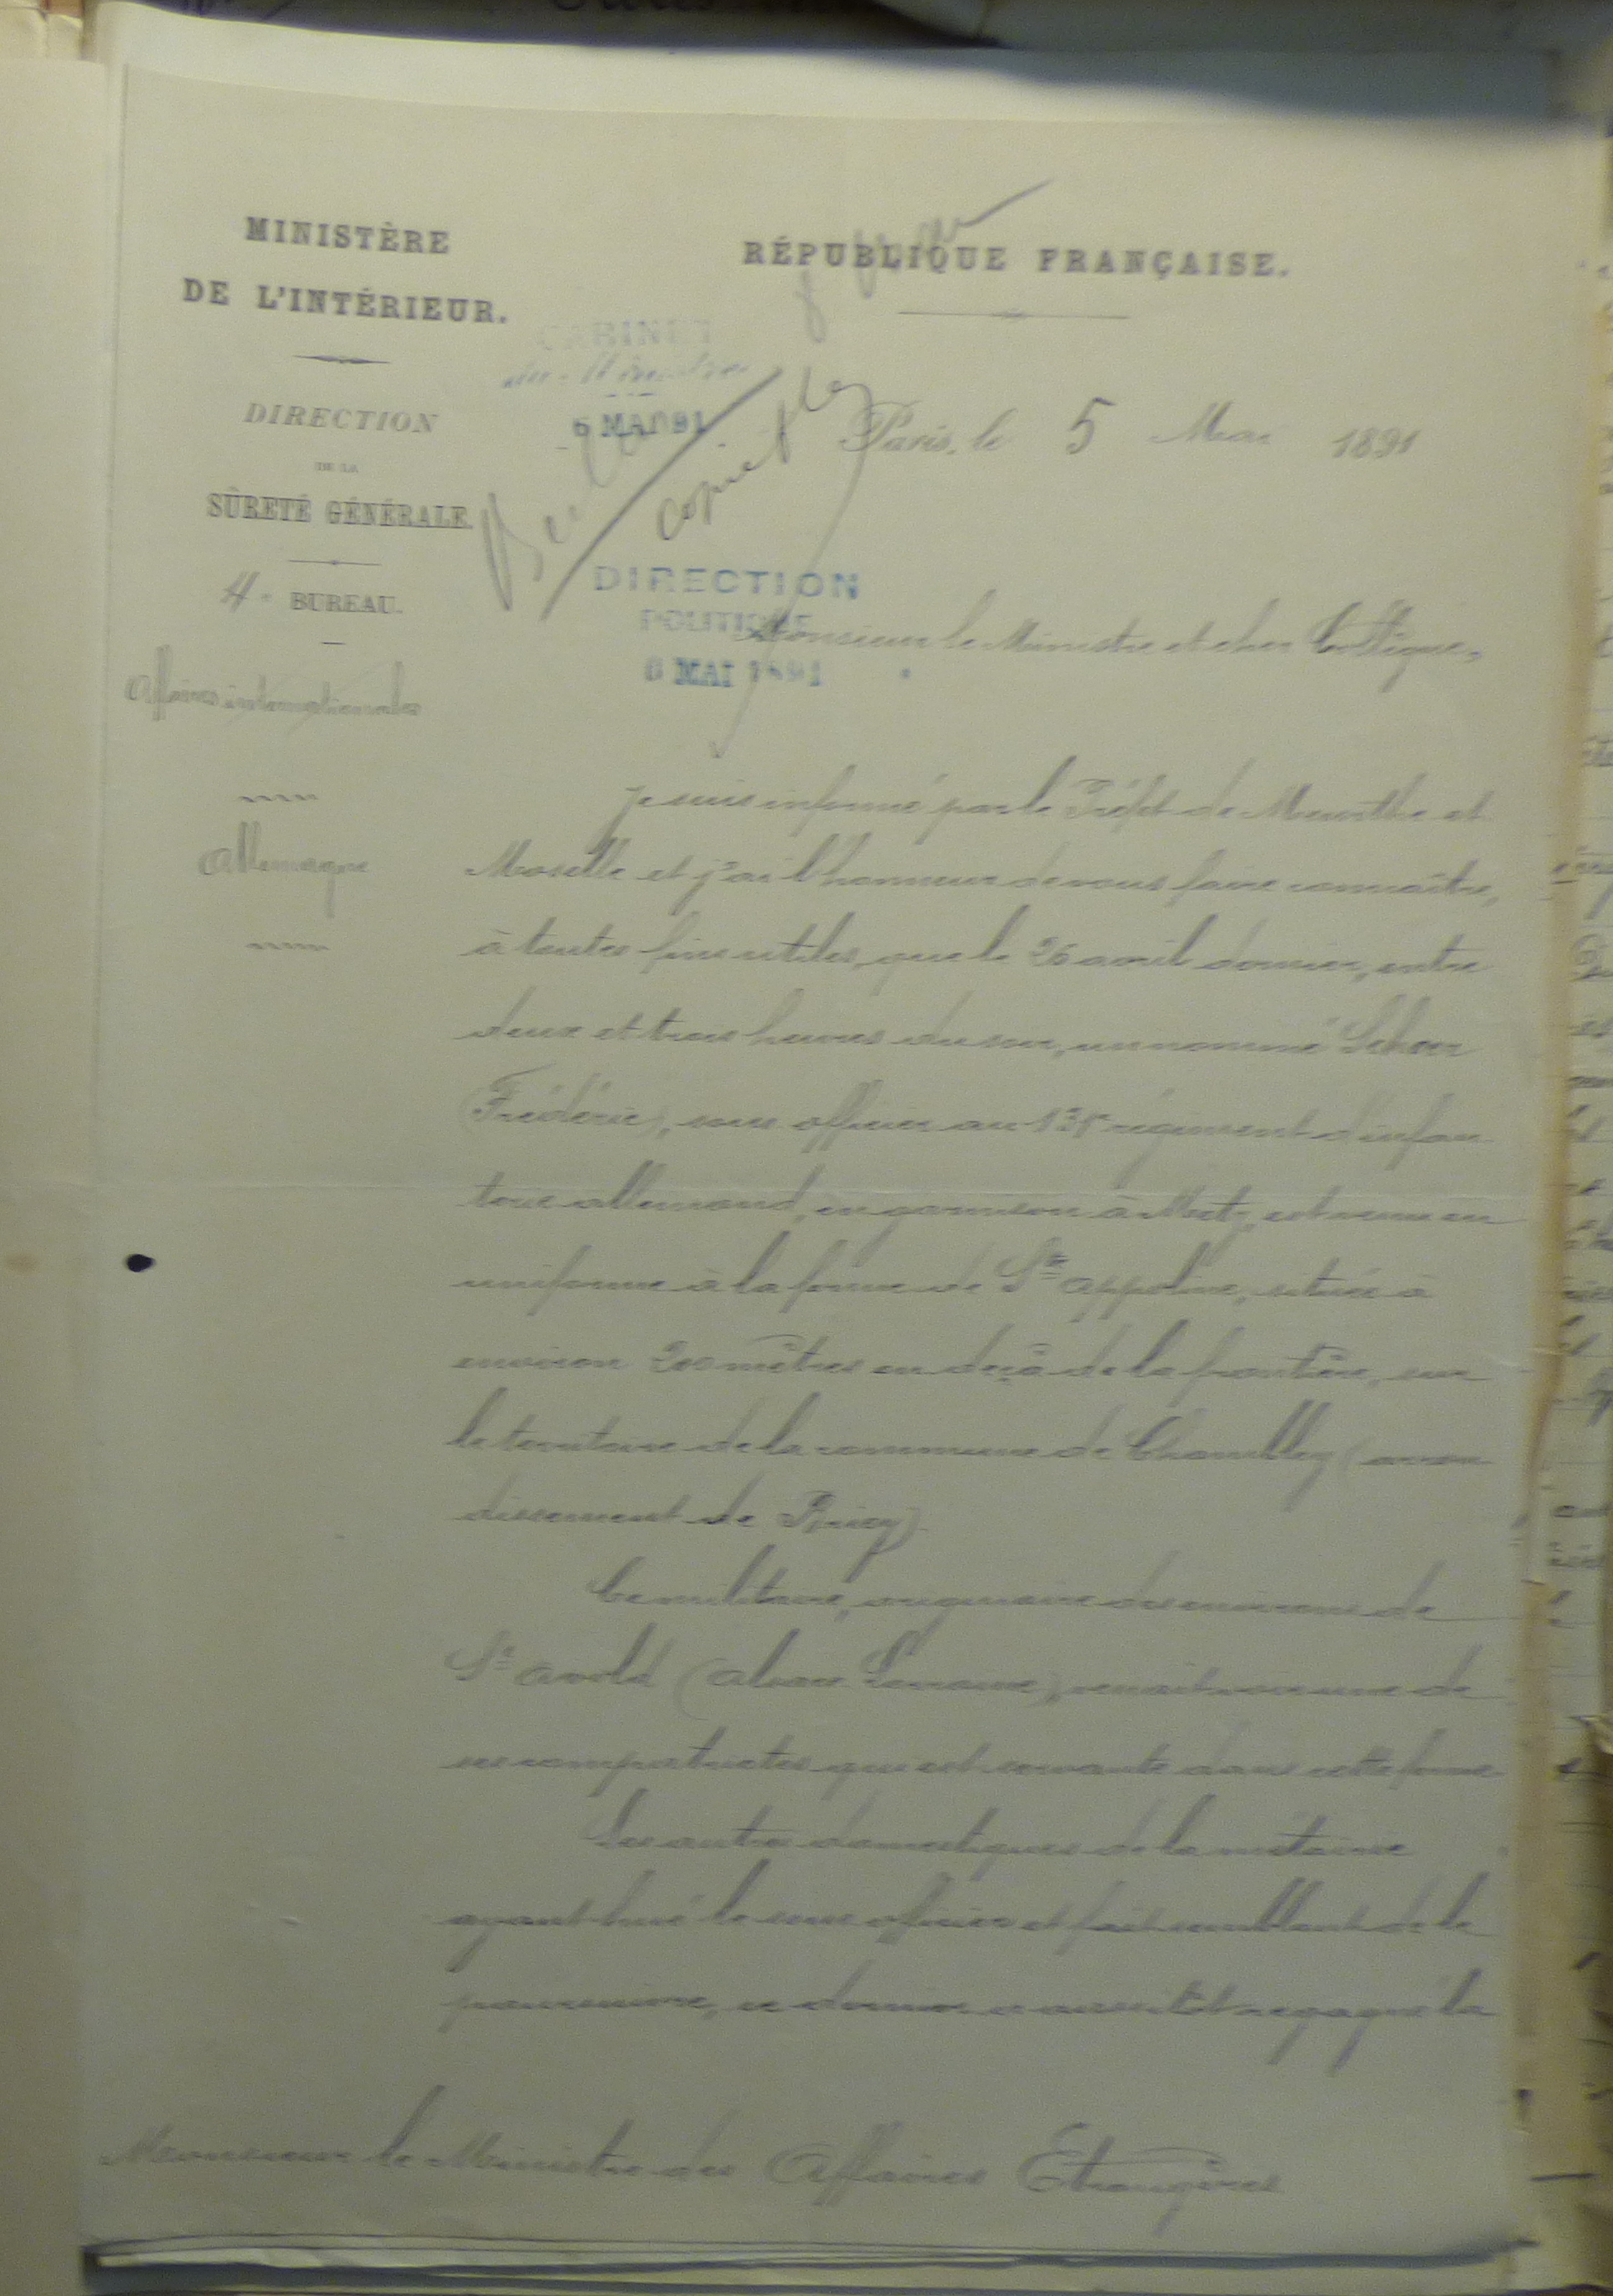 MINISTÈRE
DE L'INTÉRIEUR.
DIRECTION
DE LA
SÛRETÉ GÉNÉRALE.
4e BUREAU.
Affaires internationales
Allemagne
RÉPUBLIQUE FRANÇAISE.
CABINET
du Ministre
6 MAI 91
Berlin
copie
Paris, le 5 Mai 1891
DIRECTION
POLITIQUE
6 MAI 1891
Monsieur le Ministre et cher Collègue,
Je suis informé par le Préfet de Meurthe et
Moselle et j'ai l'honneur de vous faire connaître,
à toutes fins utiles, que le 26 avril dernier, entre
deux et trois heures du soir, un nommé
(Frédéric), sous officier au 131e régiment d'infan
terie allemand, en garnison à Metz, est venu en
uniforme à la ferme de Ste Appoline, située à
environ 200 mètres en deçà de la frontière, sur
le territoire de la commune de Chambley (arron
dissement de Briey).
Ce militaire, originaire des environs de
St Avold (Alsace Lorraine), venait voir une de
ses compatriotes qui est servante dans cette ferme
Les autres domestiques de la métairie
ayant hué le sous officier et fait semblant de le
poursuivre, ce dernier a aussitôt regagné la
Monsieur le Ministre des Affaires Etrangères